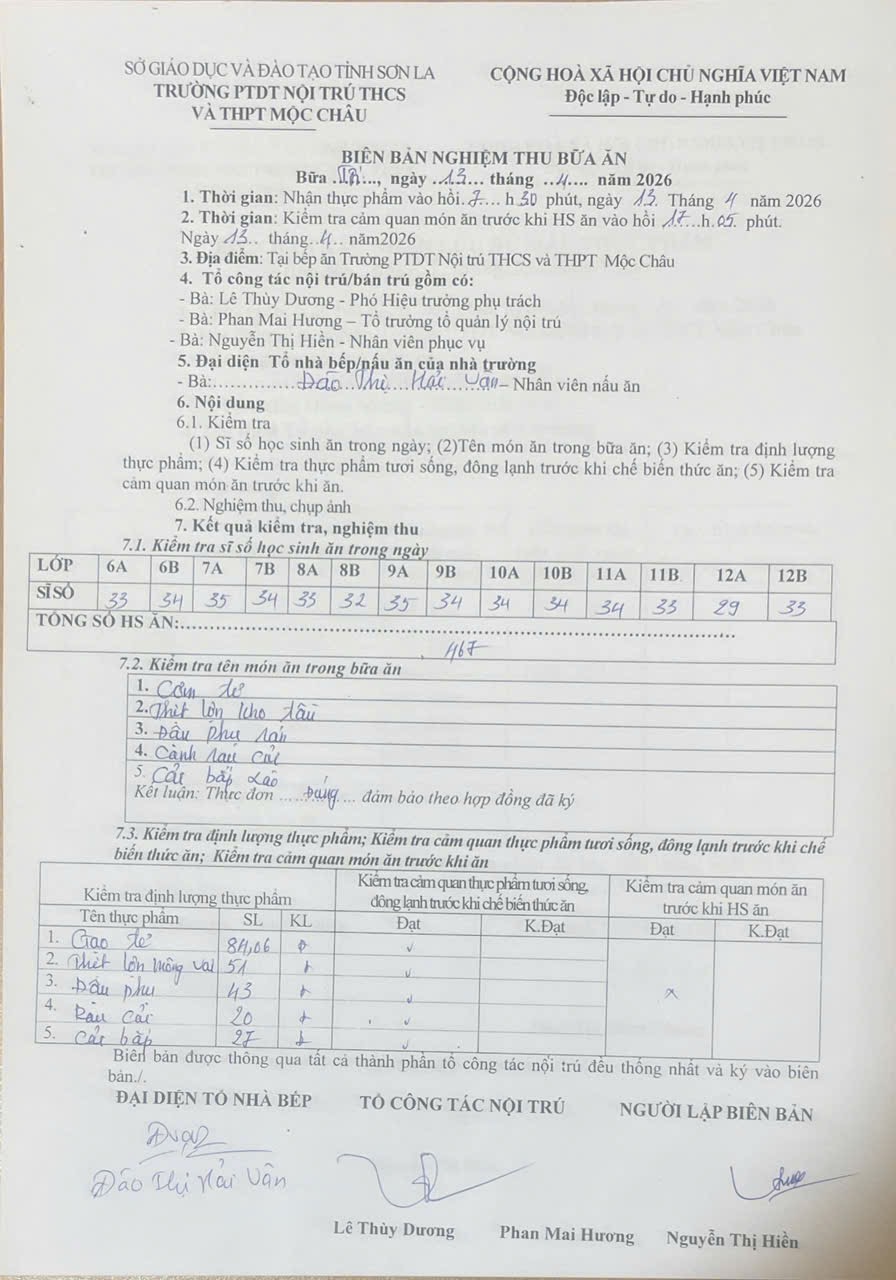 SỞ GIÁO DỤC VÀ ĐÀO TẠO TỈNH SƠN LA
TRƯỜNG PTDT NỘI TRÚ THCS
VÀ THPT MỘC CHÂU
CỘNG HOÀ XÃ HỘI CHỦ NGHĨA VIỆT NAM
Độc lập - Tự do - Hạnh phúc
BIÊN BẢN NGHIỆM THU BỮA ĂN
Bữa ..., ngày ..13... tháng ..4.... năm 2026
1. Thời gian: Nhận thực phẩm vào hồi.7... h 30 phút, ngày 13. Tháng 4 năm 2026
2. Thời gian: Kiểm tra cảm quan món ăn trước khi HS ăn vào hồi 17...h.05 phút.
Ngày 13.. tháng..4.. năm2026
3. Địa điểm: Tại bếp ăn Trường PTDT Nội trú THCS và THPT Mộc Châu
4. Tổ công tác nội trú/bán trú gồm có:
- Bà: Lê Thùy Dương - Phó Hiệu trưởng phụ trách
- Bà: Phan Mai Hương – Tổ trưởng tổ quản lý nội trú
- Bà: Nguyễn Thị Hiền - Nhân viên phục vụ
5. Đại diện Tổ nhà bếp/nấu ăn của nhà trường
- Bà:..............Đào...Thị...Hải...Vân– Nhân viên nấu ăn
6. Nội dung
6.1. Kiểm tra
(1) Sĩ số học sinh ăn trong ngày; (2)Tên món ăn trong bữa ăn; (3) Kiểm tra định lượng
thực phẩm; (4) Kiểm tra thực phẩm tươi sống, đông lạnh trước khi chế biến thức ăn; (5) Kiểm tra
cảm quan món ăn trước khi ăn.
6.2. Nghiệm thu, chụp ảnh
7. Kết quả kiểm tra, nghiệm thu
7.1. Kiểm tra sĩ số học sinh ăn trong ngày
LỚP 6A 6B 7A 7B 8A 8B 9A 9B 10A 10B 11A 11B 12A 12B
SĨ SỐ 33 34 35 34 33 32 35 34 34 34 34 33 29 33
TỔNG SỐ HS ĂN:..........................................................................................
467
7.2. Kiểm tra tên món ăn trong bữa ăn
1. Cơm tẻ
2. Thịt lợn kho tàu
3. Đậu phụ rán
4. Cành rau cải
5. Cải bắp xào
Kết luận: Thực đơn .....Đúng... đảm bảo theo hợp đồng đã ký
7.3. Kiểm tra định lượng thực phẩm; Kiểm tra cảm quan thực phẩm tươi sống, đông lạnh trước khi chế
biến thức ăn; Kiểm tra cảm quan món ăn trước khi ăn
Kiểm tra định lượng thực phẩm
Kiểm tra cảm quan thực phẩm tươi sống,
đông lạnh trước khi chế biến thức ăn
Kiểm tra cảm quan món ăn
trước khi HS ăn
Tên thực phẩm SL KL Đạt K.Đạt Đạt K.Đạt
1. Gạo tẻ 84,06 đ ✓
2. Thịt lợn mông vai 51 đ ✓
3. Đậu phụ 43 đ ✓ x
4. Rau cải 20 đ ✓
5. Cải bắp 27 đ ✓
Biên bản được thông qua tất cả thành phần tổ công tác nội trú đều thống nhất và ký vào biên
bản./.
ĐẠI DIỆN TỔ NHÀ BẾP
TỔ CÔNG TÁC NỘI TRÚ
NGƯỜI LẬP BIÊN BẢN
Đào Thị Hải Vân
Lê Thùy Dương
Phan Mai Hương
Nguyễn Thị Hiền